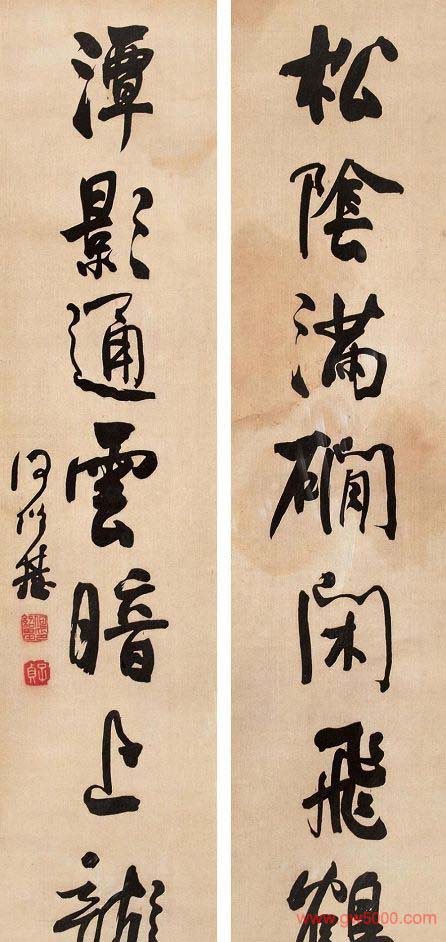 松陰滿磵閑飛鶴
潭影通雲暗上龍
何紹基
www.gw5000.com